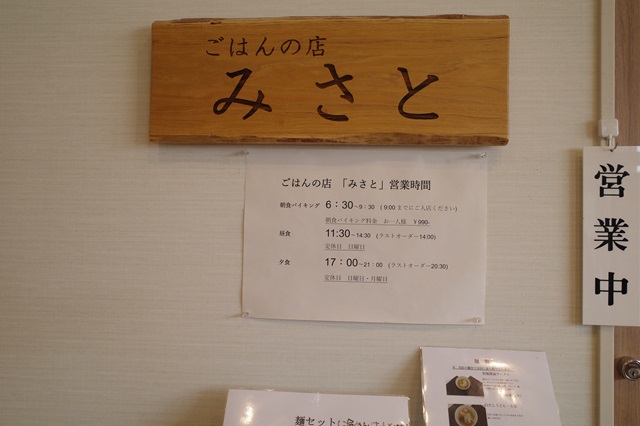 ごはんの店
みさと
ごはんの店 「みさと」営業時間
朝食バイキング 6：30～9：30 (9:00までにご入店ください)
朝食バイキング料金 お一人様 ￥990-
昼食 11:30～14:30 (ラストオーダー14:00)
定休日 日曜日
夕食 17：00～21：00 (ラストオーダー20:30)
定休日 日曜日・月曜日
営業中
麺セット